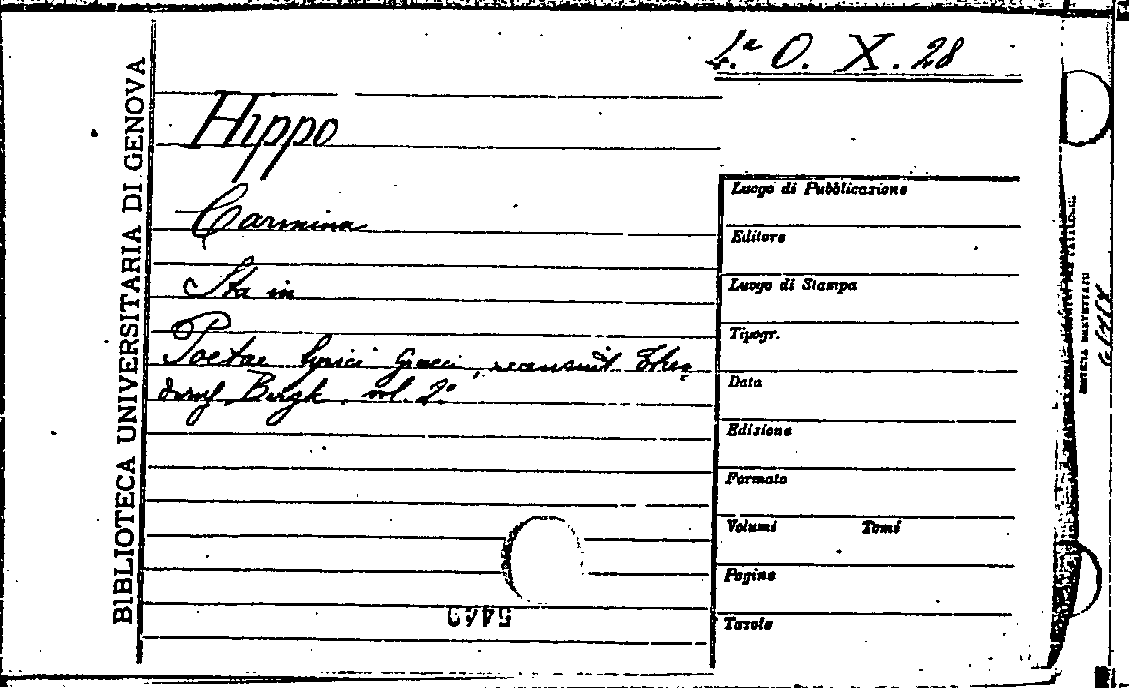 L.a O. X. 28
BIBLIOTECA UNIVERSITARIA DI GENOVA
Hippo
Carmina
Sta in
Poetae lyrici Graeci, recensuit Theo
dorus Bergk. vol. 2°
Luogo di Pubblicazione
Editore
Luogo di Stampa
Tipogr.
Data
Edizione
Formato
Volumi Tomi
Pagine
Tavole